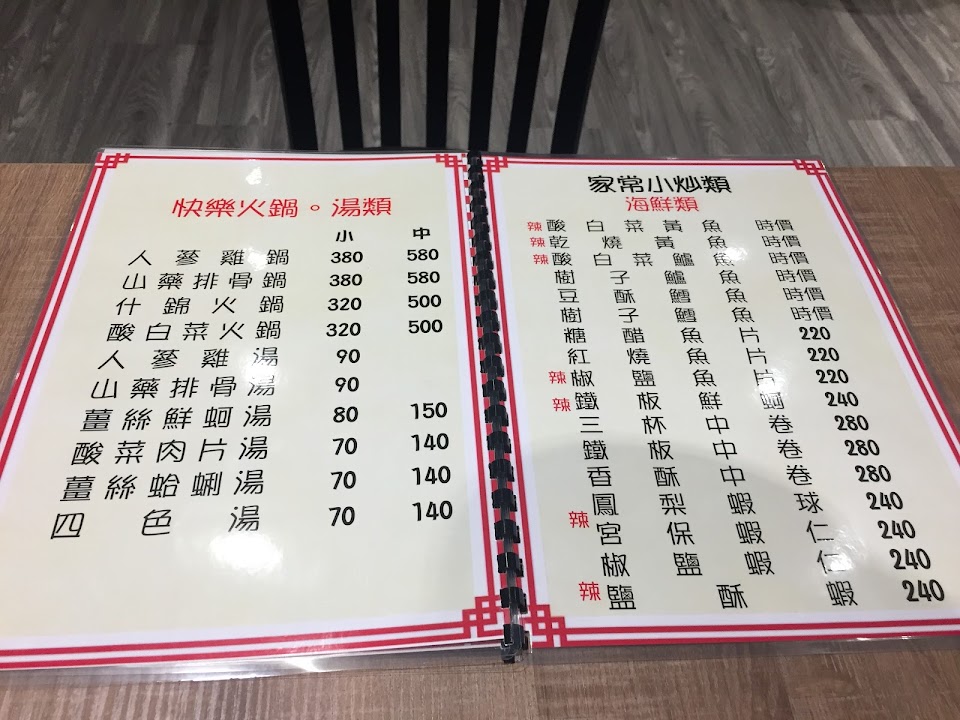 快樂火鍋。湯類
小 中
人蔘雞鍋 380 580
山藥排骨鍋 380 580
什錦火鍋 320 500
酸白菜火鍋 320 500
人蔘雞湯 90
山藥排骨湯 90
薑絲鮮蚵湯 80 150
酸菜肉片湯 70 140
薑絲蛤蜊湯 70 140
四色湯 70 140
家常小炒類
海鮮類
辣 酸白菜黃魚 時價
辣 乾燒黃魚 時價
辣 酸白菜鱸魚 時價
樹子鱸魚 時價
豆酥鱈魚 時價
樹子鱈魚 時價
糖醋魚片 220
紅燒魚片 220
辣 椒鹽魚片 220
辣 鐵板鮮蚵 240
三杯中卷 280
鐵板中卷 280
香酥中卷 280
鳳梨蝦球 240
辣 宮保蝦仁 240
椒鹽蝦仁 240
辣 鹽酥蝦 240